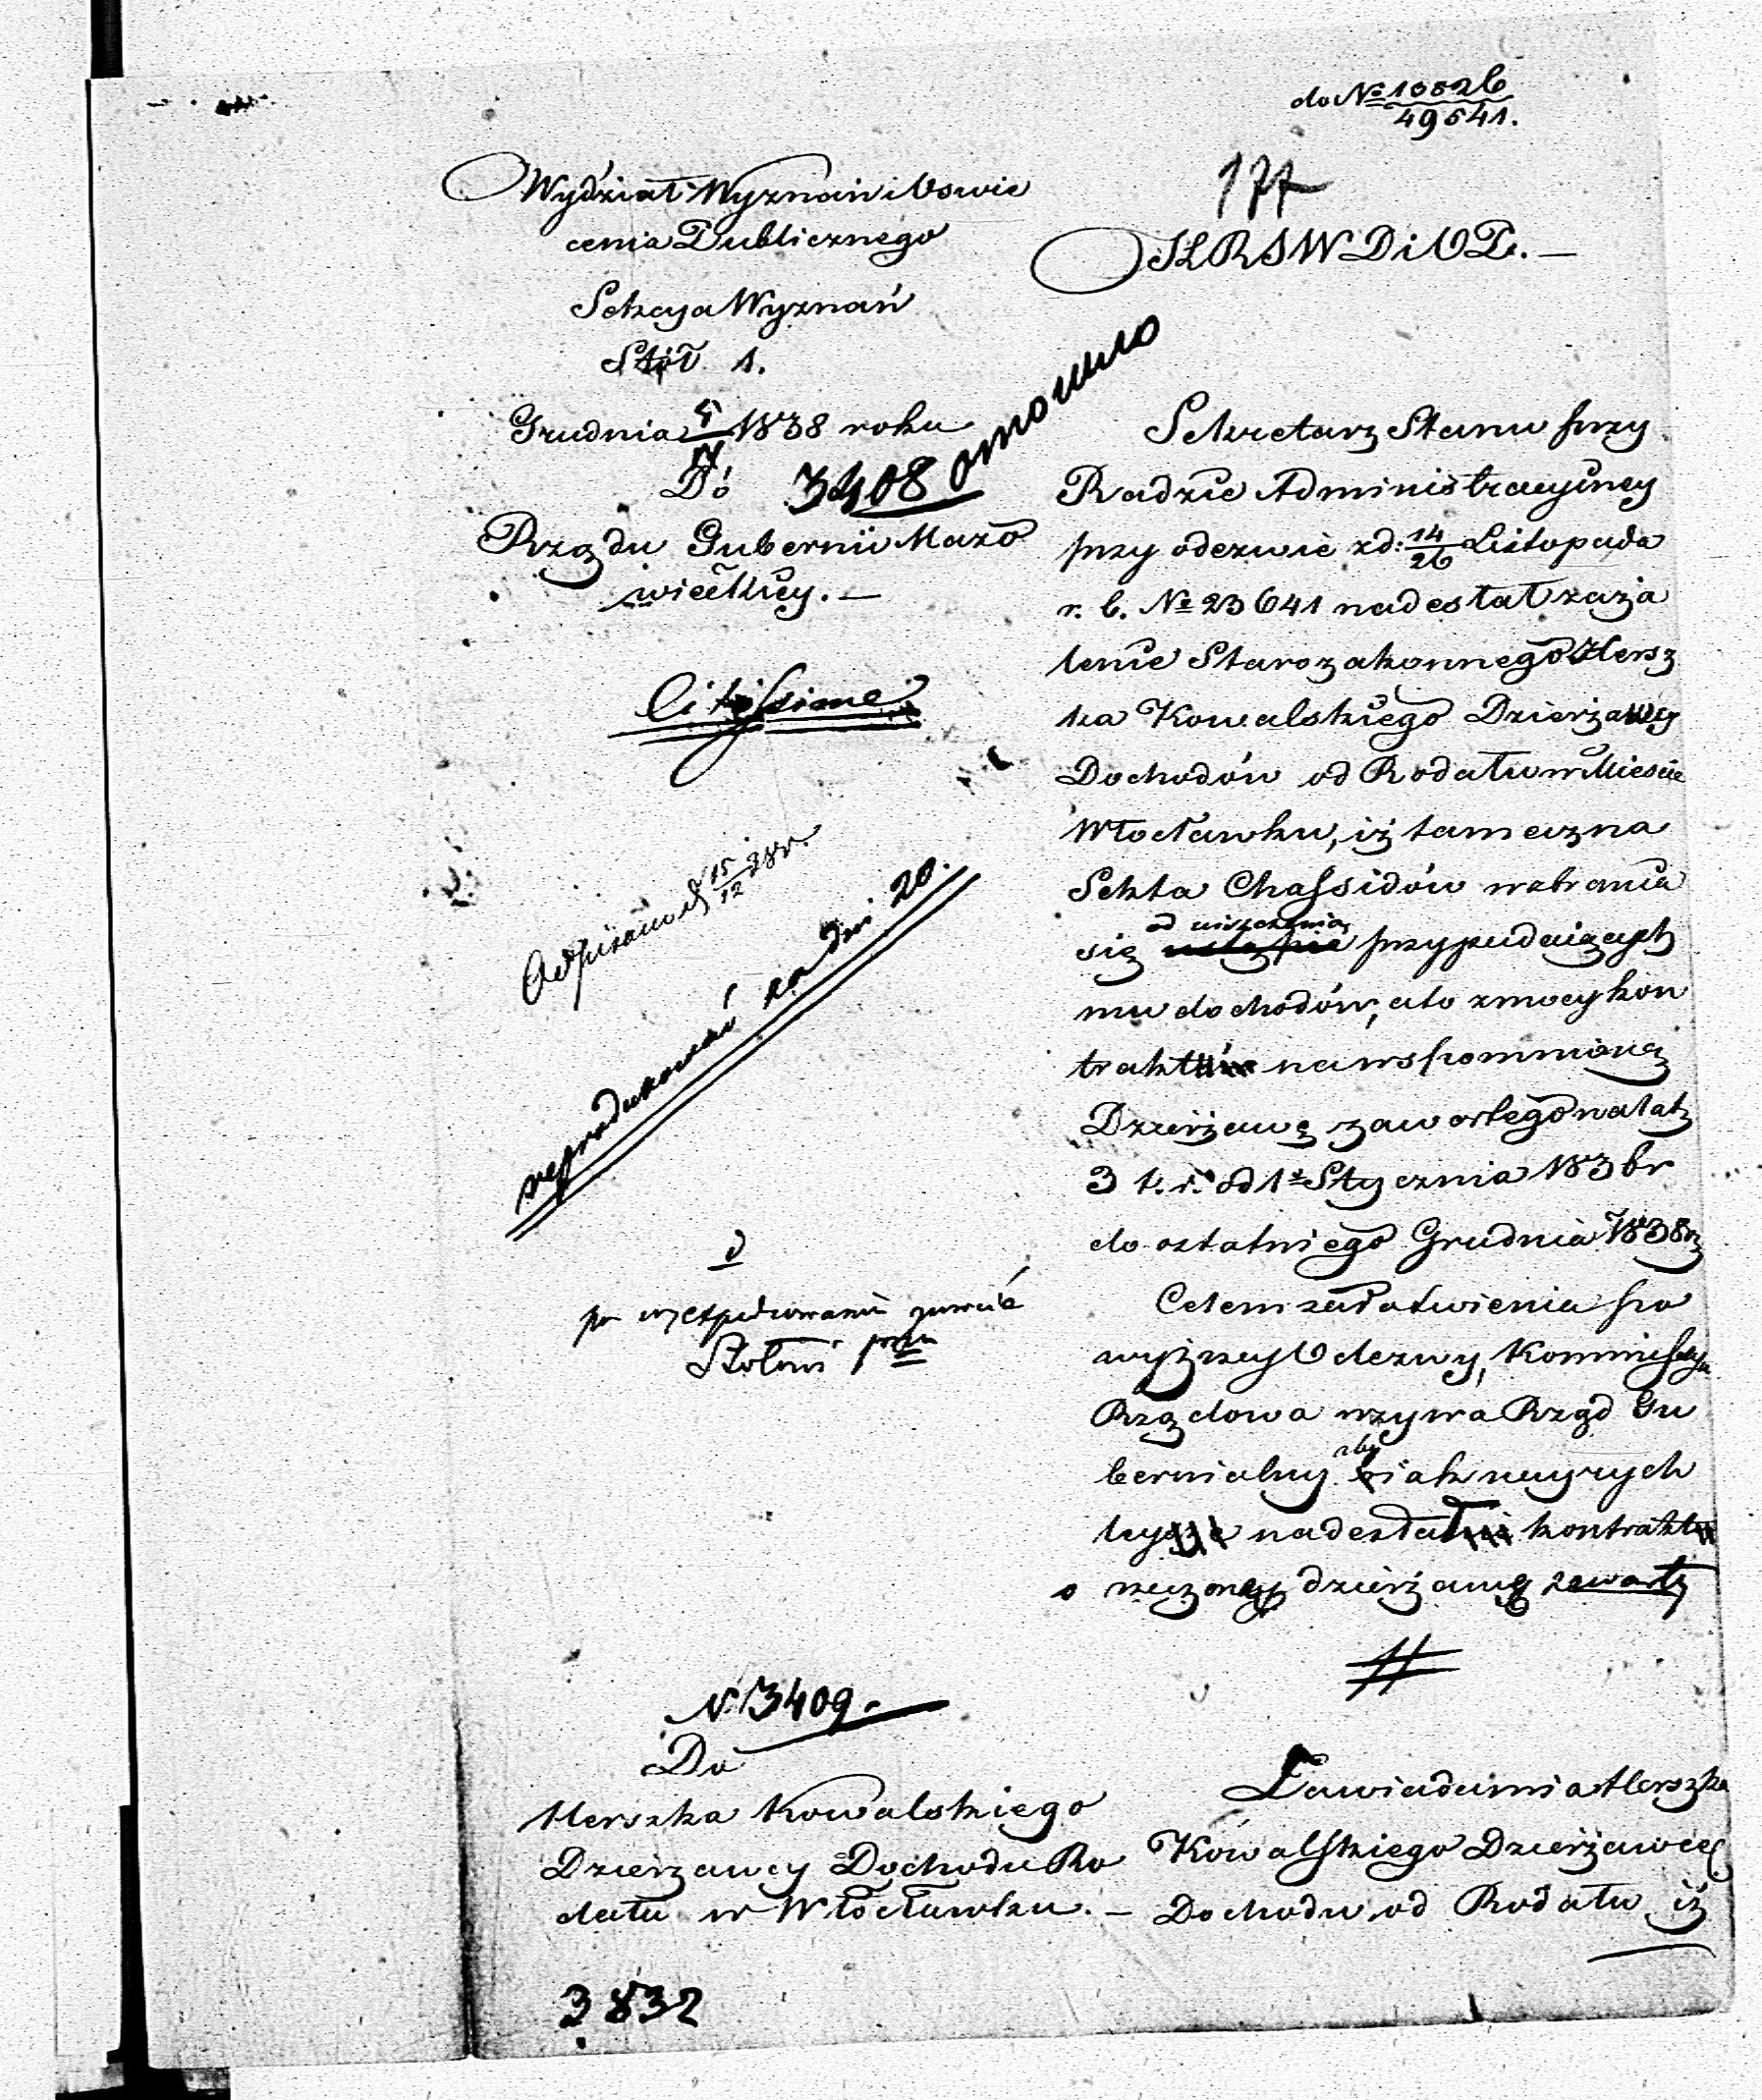 do № 10826
49641.
177
Wydział Wyznań i Oświe
cenia Publicznego
Sekcya Wyznań
Stół 1.
Grudnia 1838 roku
Do 3408
Rządu Gubernii Mazo
wieckiey. —
Citissime
Odpisano d. 15/12 38 r.
reprodukować za dni 20.
po wyexpediowaniu zwrócić
Stołowi
K R S W D i O P. —
Sekretarz Stanu przy
Radzie Administracyiney
przy odezwie z d: 14/26 Listopada
r. b. № 23641 nadesłał zaża
lenie Starozakonnego Hersz
ka Kowalskiego Dzierżawcy
Dochodów od Rodału w Mieście
Włocławku, iż tameczna
Sekta Chassidów wzbrania
od uiszczenia
się przypadaiących
mu dochodów, a to z mocy kon
traktu na wspomnioną
Dzierżawę zawartego na lat
3 t. i. od 1 Stycznia 1836 r
do ostatniego Grudnia 1838 r
Celem załatwienia po
wyższey Odezwy, Kommissya
Rządowa wzywa Rząd Gu
aby
bernialny iak nayrych
ley nadesłał kontrakt
o rzeczoną dzierżawę zawarty
N. 3409.
Do
Herszka Kowalskiego
Dzierżawcy Dochodu Ro
dału w Włocławku. —
Zawiadamia Herszka
Kowalskiego Dzierżawcę
Dochodu od Rodału, iż
3832